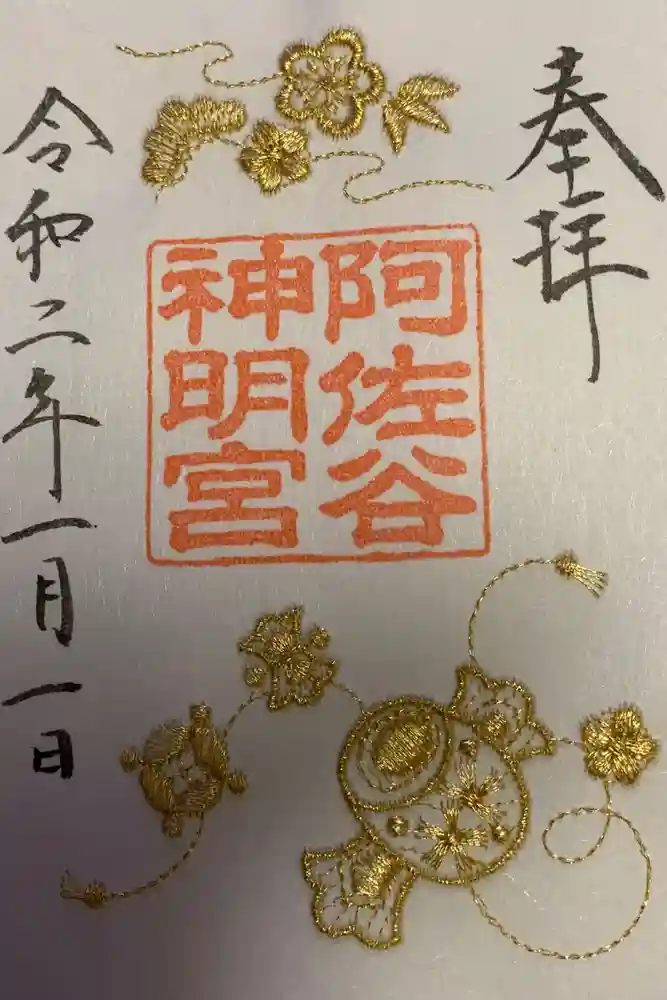 奉拝
阿佐谷
神明宮
令和二年一月一日